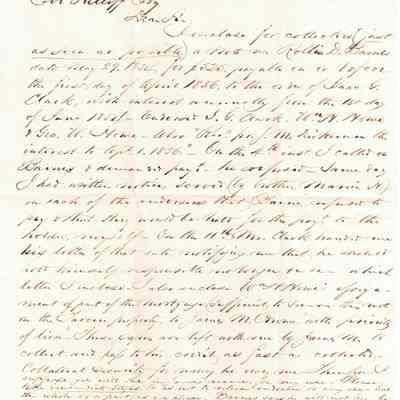 Esq
Dear Sir
I enclose for collection (just
as soon as possible) a note on Rollin S. Barnes
date May 29. 1854. for $250. payable on or before
the first day of April 1856, to the order of Isaac G.
Clark, with interest annually from the 1st day
of June 1854 — Endorsed I. G. Clark. Wm. H. Howe
& Geo. W. Howe — Who M. Dickerman the
interest to Sept. 1. 1856 — On the 4th inst I called on
Barnes & demanded payt. he refused — Same day
I had written notices served (by brother Marvin N.)
on each of the endorsers that Barnes refused to
pay & that they would be held for the payt. to the
holder, myself. On the 11th Mr. Clark handed me
his letter of that date notifying me that he should
hold himself responsible no longer which
letter I enclose. I also enclose Wm H. Howe's assign-
ment of part of the mortgage sufficient to secure this note
on the property to James M. with priority
of lien. These papers are left with me by James M. to
collect and pay to his credit as fast as collected.
Collateral security for money he owes me. Therefore I
suppose you will use in my name. Please
to as not to
the whole Barnes said he will not be